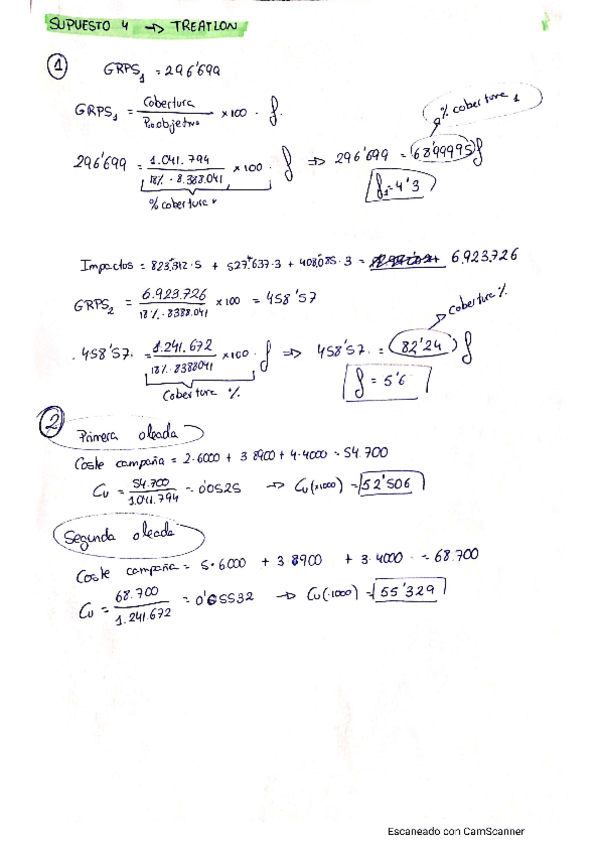 SUPUESTO 4 → TREATLON
1 GRPS₁ = 296'699
GRPS₁ = Cobertura / Pobobjetivo × 100 · f.
% cobertura 1
296'699 = 1.041.794 / 18% · 8.388.041 × 100 · f ⇒ 296'699 = 68'99995 f
% cobertura
f₁ = 4'3
Impactos = 823.342·5 + 527.637·3 + 408.085·3 = 6.923.726
GRPS₂ = 6.923.726 / 18% · 8388.041 × 100 = 458'57
cobertura %
458'57 = 1.241.672 / 18% · 8388041 × 100 · f ⇒ 458'57 = 82'24 f
Cobertura %
f = 5'6
2 Primera oleada
Coste campaña = 2·6000 + 3·8900 + 4·4000 = 54.700
Cu = 54.700 / 1.041.794 = 0'0525 → Cu(×1000) = 52'506
Segunda oleada
Coste campaña = 5·6000 + 3·8900 + 3·4000 = 68.700
Cu = 68.700 / 1.241.672 = 0'05532 → Cu(·1000) = 55'329
Escaneado con CamScanner